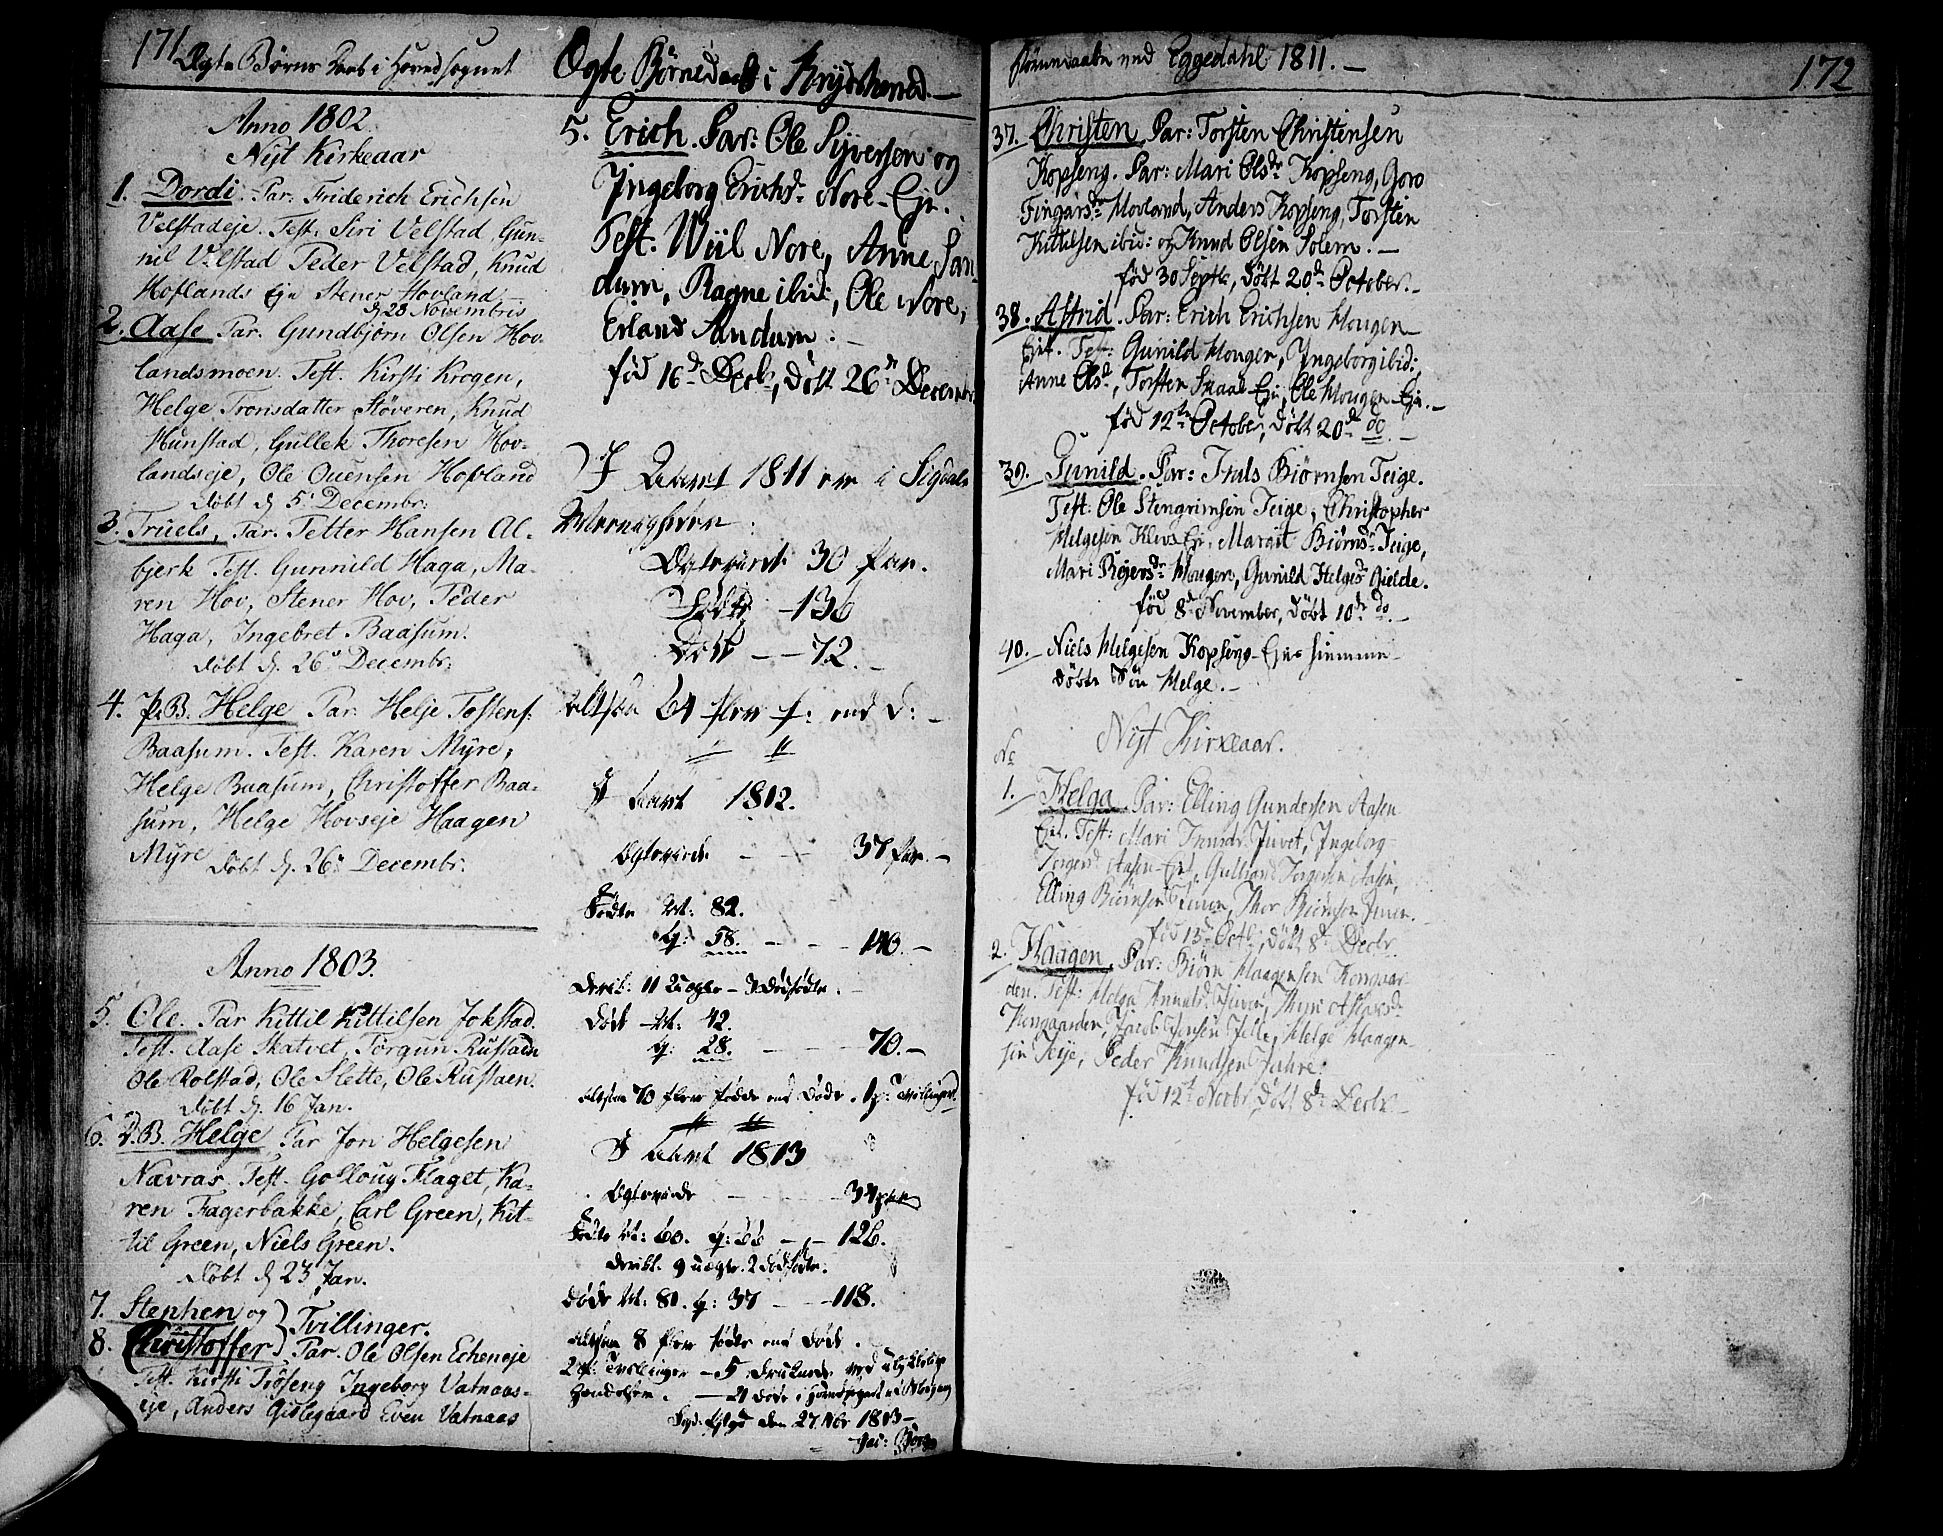 171
Ægte Børns Daab i Hovedsognet
Anno 1802.
Nyt Kirkeaar
1. Dordi. Par. Friderich Erichsen
Velstadeje. Test. Siri Velstad, Gun-
nil Velstad Peder Velstad, Knud
Hoflands Eje Stener Hovland
d. 28 Novembris
2. Aase Par. Gundbjörn Olsen Hov-
landsmoen. Test. Kirsti Krogen,
Helge Tronsdatter Støveren, Knud
Hunstad, Gullek Thoresen Hov-
landseje, Ole Ouensen Hofland
døbt d. 5 Decembr:
3. Truels, Par. Petter Hansen Al-
bjerk Test. Gunnild Haga, Ma-
ren Hov, Stener Hov, Peder
Haga, Ingebret Baasum.
døbt d. 26 Decembr:
4. P.B. Helge Par. Helje Tostens:
Baasum. Test. Karen Myre,
Helge Baasum, Christoffer Baa-
sum, Helge Hovseje Haagen
Myre døbt d. 26 Decembr:
Anno 1803.
5. Ole. Par Kittil Kittilsen Jokstad.
Test. Aase Skatvet, Torgun Rustaen
Ole Rolstad, Ole Slette, Ole Rustaen.
døbt d. 16 Jan.
6. D.B. Helge Par Jon Helgesen
Nævras Test. Golloug Flaget, Ka-
ren Fagerbakke, Carl Green, Kit-
til Green, Niels Green.
døbt d 23 Jan.
7. Stephen og
8. Christoffer } Tvillinger.
Par. Ole Olsen Echeneje
Test. Kirsti Trøseng Ingeborg Vatnaas-
eje, Anders Gislegaard Even Vatnaas
Ægte Børnedaab i Krydsherred.—
5. Erich. Par: Ole Syversen og
Yngeborg Erichsd. Nore-Eje.
Test: Wiil Nore, Anne San-
dum, Ragne ibid:, Ole Nore,
Erland Sandum.
fød 16 Decb, døbt 26 Decem
I Aaret 1811 er i Sigdals
Ægteviede 30 Par.
Fødte - 136
Døde - - 72.-
altsaa 64 fler f: end d: -
I Aaret 1812.
Ægteviede - - 37 Par. -
Fødte M: 82.
Q: 58. - - - 140. -
Deribl: 11 Uægte - 3 Dødfødte.
Døde - M: 42.
Q: 28. - - 70. -
Altsaa 70 flere fødde end Døde. 1 p: Tvillinger.
I Aaret 1813
Ægteviede - - - 34 par
Fødte M: 60. Q: 66 - - 126.
Deribl. 9 uægte. 2 dødfødte.
Døde M: 81. Q: 37 - - 118.
Altsaa 8 flere fødte end Døde.
2 p: Tvillinger - 5 Druknede ved ulykkelige
Hændelser.
den 27 Nbr 1813 -
med Eggedahl 1811. -
172
37. Christen. Par: Torsten Christensen
Kopseng. Par: Mari Olsdr Kopseng, Goro
Fingarsdr Movland, Anders Kopseng, Torsten
Kittilsen ibid: og Knud Olsen Solem. -
fød 30 Septb, døbt 20 October. -
38. Astrid. Par: Erich Erichsen Mougen-
Eje. Test: Gunild Mougen, Yngeborg ibid:,
Anne Olsd, Torsten Skaal-Eje, Ole Mougen-Eje. -
fød 12te October, døbt 20 do. -
39. Gunild. Par: Truls Biørnsen Teige.
Test: Ole Stengrimsen Teige, Christopher
Helgesen Klevs Eje, Margit Biørnsd Teige,
Mari Rejersdr Mougen, Gunild Helgesd Gielde.
fød 8 November, døbt 10 do. -
40. Niels Helgesen Kopseng-Ejes hiemme-
døbte Søn Helge. -
Nyt Kirkeaar.
No
1. Helga. Par: Elling Gundersen Aasen
Eje. Test: Mari Juvet, Yngeborg
Aasen-Eje, Gulbrand Aasen,
Elling Biørnsen Juven, Thor Biørnson Juven.
fød 13 Octb, døbt 8 Decbr.
2. Haagen. Par: Biørn Haagensen Kongaar-
den. Test: Helga Juven,
Kongaarden, Jacob Jensen Jelle, Helge Haagen
sen Teije, Peder Knudsen Jahre.
fød 12 Novbr, døbt 8 Decbr -